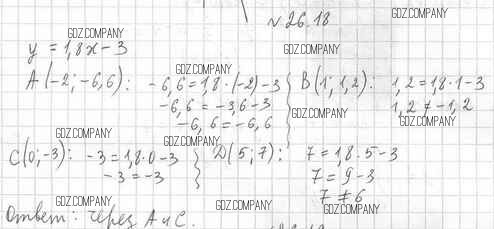 №26.18
GDZ.COMPANY
GDZ.COMPANY
y = 1,8x - 3
GDZ.COMPANY
GDZ.COMPANY
A(-2; -6,6): -6,6 = 1,8·(-2) - 3
-6,6 = -3,6 - 3
-6,6 = -6,6
B(1; 1,2): 1,2 = 1,8·1 - 3
1,2 ≠ -1,2
GDZ.COMPANY
GDZ.COMPANY
GDZ.COMPANY
GDZ.COMPANY
C(0; -3): -3 = 1,8·0 - 3
-3 = -3
D(5; 7): 7 = 1,8·5 - 3
7 = 9 - 3
7 ≠ 6
GDZ.COMPANY
GDZ.COMPANY
GDZ.COMPANY
Ответ: через A и C.